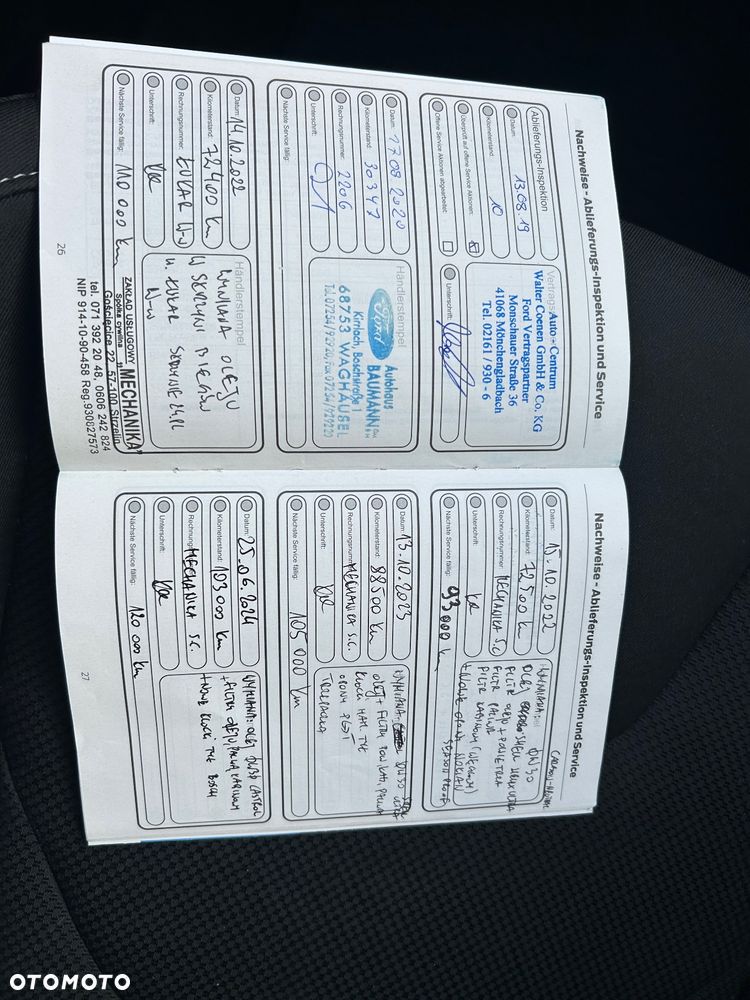 Nachweise - Ablieferungs-Inspektion und Service
Ablieferungs-Inspektion
Datum: 13.08.19
Kilometerstand: 10
Überprüft auf offene Service Aktionen:
Offene Service Aktionen abgearbeitet:
Vertrags
Auto-Centrum
Walter Coenen GmbH & Co. KG
Ford Vertragspartner
Monschauer Straße 36
41068 Mönchengladbach
Tel. 02161 / 930 - 6
Unterschrift:
Datum: 17 08 2020
Kilometerstand: 30347
Rechnungsnummer: 2206
Unterschrift:
Nächste Service fällig:
Händlerstempel
Ford
Autohaus
BAUMANN GmbH
Kirrlach, Boschstraße 1
68753 WAGHÄUSEL
Tel. 07254/92920, Fax 07254/929220
Datum: 14.10.2022
Kilometerstand: 72400 km
Rechnungsnummer: ŁUKAR W-w
Unterschrift:
Nächste Service fällig: 110 000 km
Händlerstempel
WYMIANA OLEJU
W SKRZYNI BIEGÓW
W-w
ZAKŁAD USŁUGOWY "MECHANIKA"
Spółka cywilna
Gościęcice 22, 57-100 Strzelin
tel. 071 392 20 48, 0606 242 824
NIP 914-10-90-458 Reg.930827573
26
Nachweise - Ablieferungs-Inspektion und Service
Datum: 15.10.2022
Kilometerstand: 72500 km
Rechnungsnummer: MECHANIKA S.C.
Unterschrift:
Nächste Service fällig: 93 000 km
WYMIANA:
OLEJ SHELL HELIX ULTRA 0W30
FILTR OLEJU + POWIETRZA
FILTR PALIWA
FILTR KABINOWY (WĘGLOWY)
+ NOWE OPONY NOKIAN
SEASON PROOF
Datum: 13.10.2023
Kilometerstand: 88500 km
Rechnungsnummer: MECHANIKA S.C.
Unterschrift:
Nächste Service fällig: 105 000 km
WYMIANA: 0W30
OLEJ + FILTRY POW, KAB, PALIWA
KLOCKI HAM. TYŁ
OPONY PRZÓD
Datum: 25.06.2024
Kilometerstand: 103 000 km
Rechnungsnummer: MECHANIKA S.C.
Unterschrift:
Nächste Service fällig: 120 000 km
WYMIANA: OLEJ 0W30 CASTROL
+ FILTRY OLEJU, PALIWA, KABINOWY
+ NOWE KLOCKI TYŁ BOSCH
27
OTOMOTO